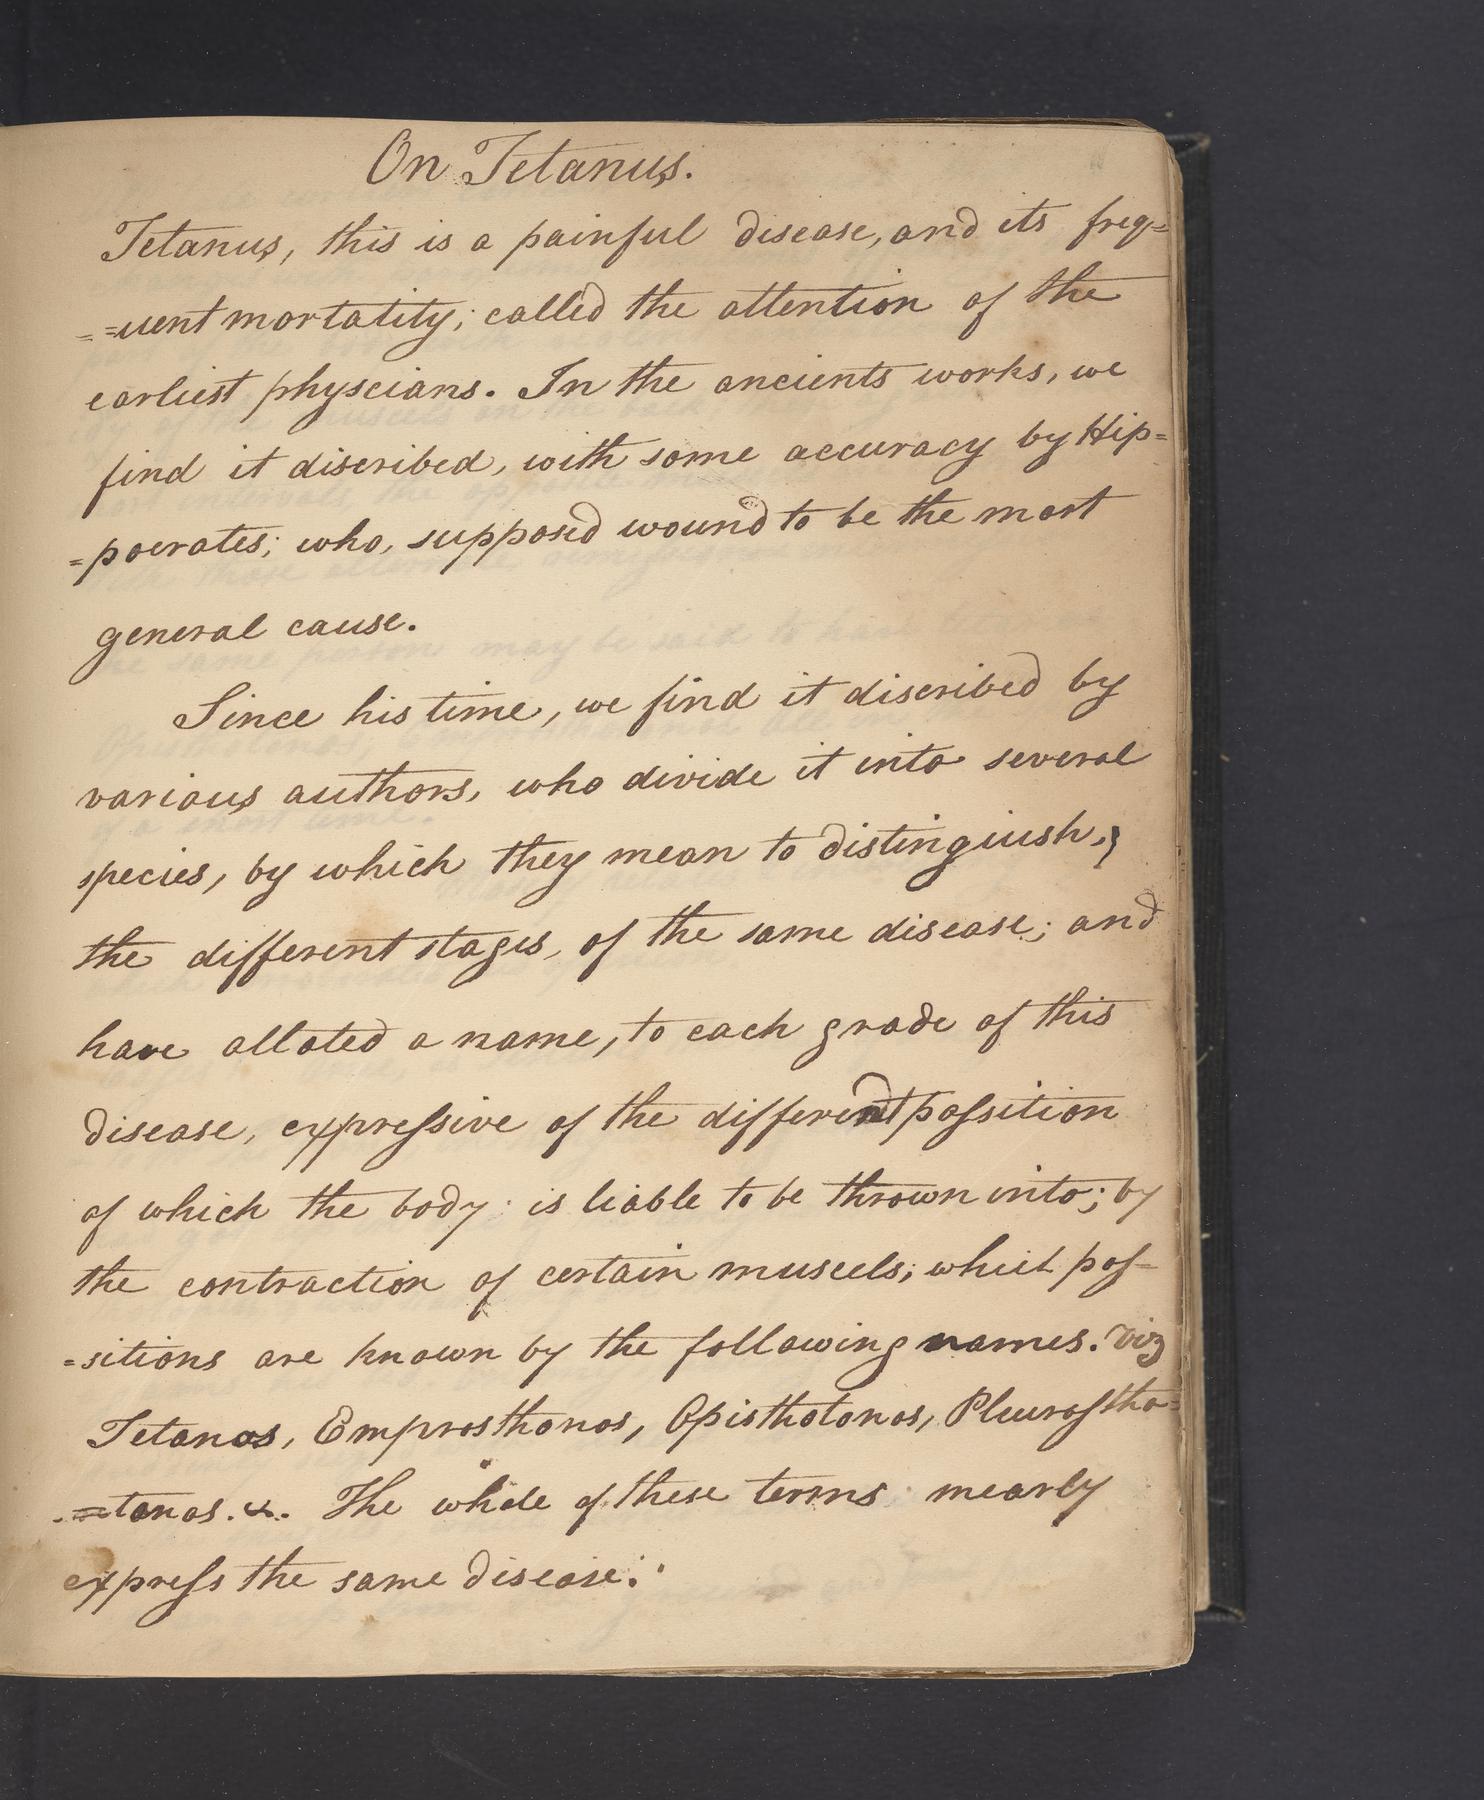 On Tetanus.
Tetanus, this is a painful disease, and its freq=
=uent mortatity; called the attention of the
earliest physcians. In the ancients works, we
find it discribed, with some accuracy by Hip=
=pocrates; who, supposed wound to be the most
general cause.
Since his time, we find it discribed by
various authors, who divide it into several
species, by which they mean to distingiush,
the different stages, of the same disease; and
have alloted a name, to each grade of this
disease, expressive of the different possition
of which the body is liable to be thrown into; by
the contraction of certain muscels; whict pos=
=sitions are known by the following names. Viz
Tetanos, Emprosthonos, Opisthotonos, Pleurostho=
=tonos. &. The whole of these terms mearly
express the same disease.